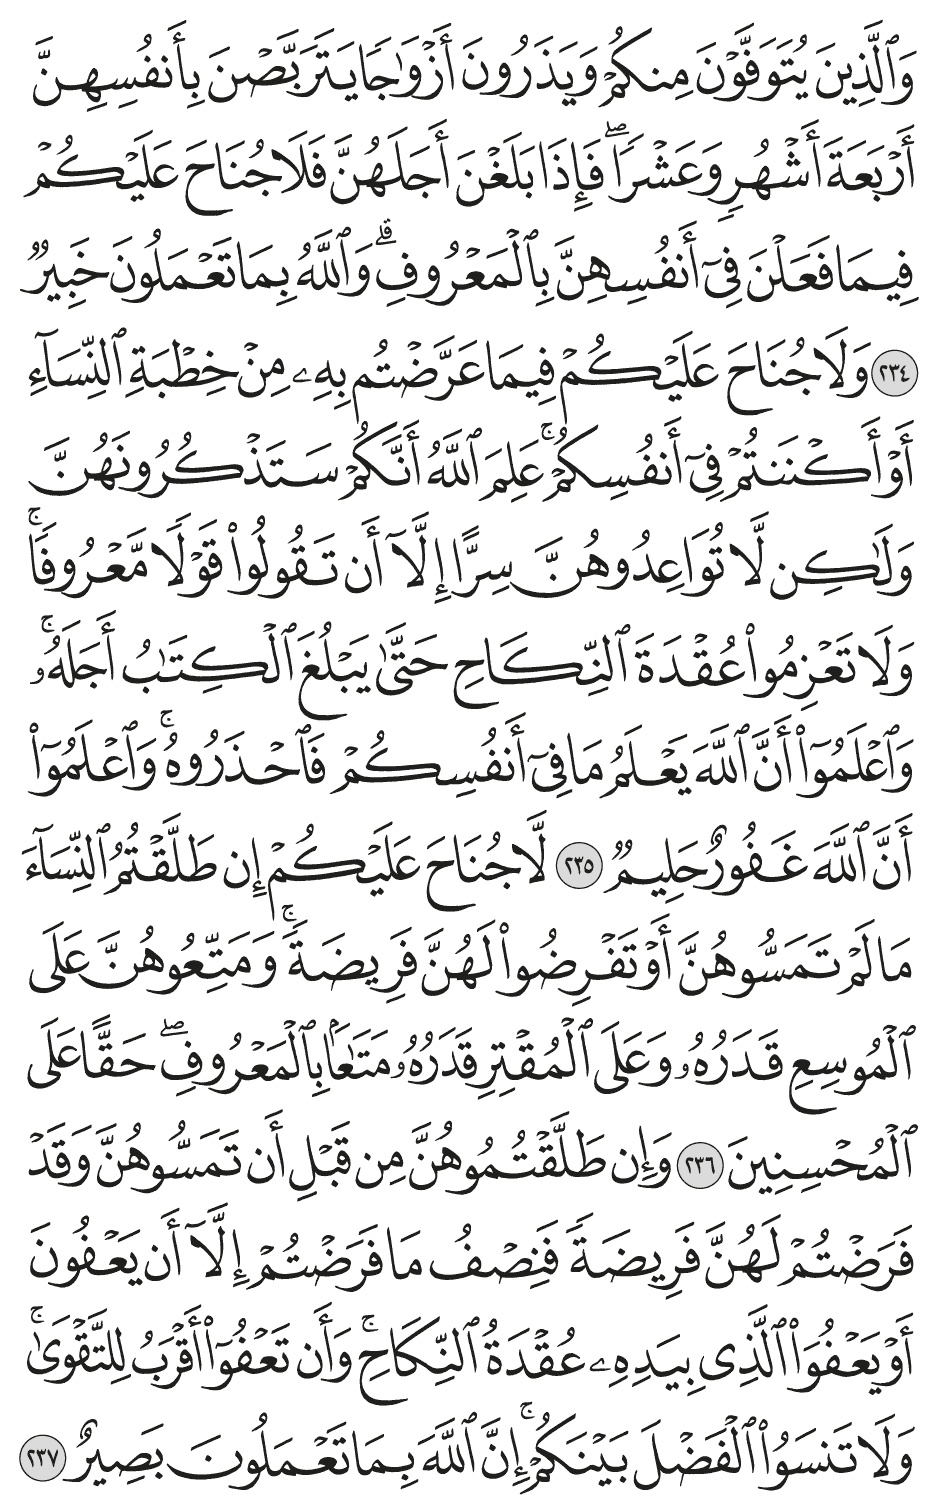 وَٱلَّذِينَ يُتَوَفَّوۡنَ مِنكُمۡ وَيَذَرُونَ أَزۡوَٰجٗا يَتَرَبَّصۡنَ بِأَنفُسِهِنَّ
أَرۡبَعَةَ أَشۡهُرٖ وَعَشۡرٗاۖ فَإِذَا بَلَغۡنَ أَجَلَهُنَّ فَلَا جُنَاحَ عَلَيۡكُمۡ
فِيمَا فَعَلۡنَ فِيٓ أَنفُسِهِنَّ بِٱلۡمَعۡرُوفِۗ وَٱللَّهُ بِمَا تَعۡمَلُونَ خَبِيرٞ
٢٣٤ وَلَا جُنَاحَ عَلَيۡكُمۡ فِيمَا عَرَّضۡتُم بِهِۦ مِنۡ خِطۡبَةِ ٱلنِّسَآءِ
أَوۡ أَكۡنَنتُمۡ فِيٓ أَنفُسِكُمۡۚ عَلِمَ ٱللَّهُ أَنَّكُمۡ سَتَذۡكُرُونَهُنَّ
وَلَٰكِن لَّا تُوَاعِدُوهُنَّ سِرًّا إِلَّآ أَن تَقُولُواْ قَوۡلٗا مَّعۡرُوفٗاۚ
وَلَا تَعۡزِمُواْ عُقۡدَةَ ٱلنِّكَاحِ حَتَّىٰ يَبۡلُغَ ٱلۡكِتَٰبُ أَجَلَهُۥۚ
وَٱعۡلَمُوٓاْ أَنَّ ٱللَّهَ يَعۡلَمُ مَا فِيٓ أَنفُسِكُمۡ فَٱحۡذَرُوهُۚ وَٱعۡلَمُوٓاْ
أَنَّ ٱللَّهَ غَفُورٌ حَلِيمٞ ٢٣٥ لَّا جُنَاحَ عَلَيۡكُمۡ إِن طَلَّقۡتُمُ ٱلنِّسَآءَ
مَا لَمۡ تَمَسُّوهُنَّ أَوۡ تَفۡرِضُواْ لَهُنَّ فَرِيضَةٗۚ وَمَتِّعُوهُنَّ عَلَى
ٱلۡمُوسِعِ قَدَرُهُۥ وَعَلَى ٱلۡمُقۡتِرِ قَدَرُهُۥ مَتَٰعَۢا بِٱلۡمَعۡرُوفِۖ حَقًّا عَلَى
ٱلۡمُحۡسِنِينَ ٢٣٦ وَإِن طَلَّقۡتُمُوهُنَّ مِن قَبۡلِ أَن تَمَسُّوهُنَّ وَقَدۡ
فَرَضۡتُمۡ لَهُنَّ فَرِيضَةٗ فَنِصۡفُ مَا فَرَضۡتُمۡ إِلَّآ أَن يَعۡفُونَ
أَوۡ يَعۡفُوَاْ ٱلَّذِي بِيَدِهِۦ عُقۡدَةُ ٱلنِّكَاحِۚ وَأَن تَعۡفُوٓاْ أَقۡرَبُ لِلتَّقۡوَىٰۚ
وَلَا تَنسَوُاْ ٱلۡفَضۡلَ بَيۡنَكُمۡۚ إِنَّ ٱللَّهَ بِمَا تَعۡمَلُونَ بَصِيرٌ ٢٣٧